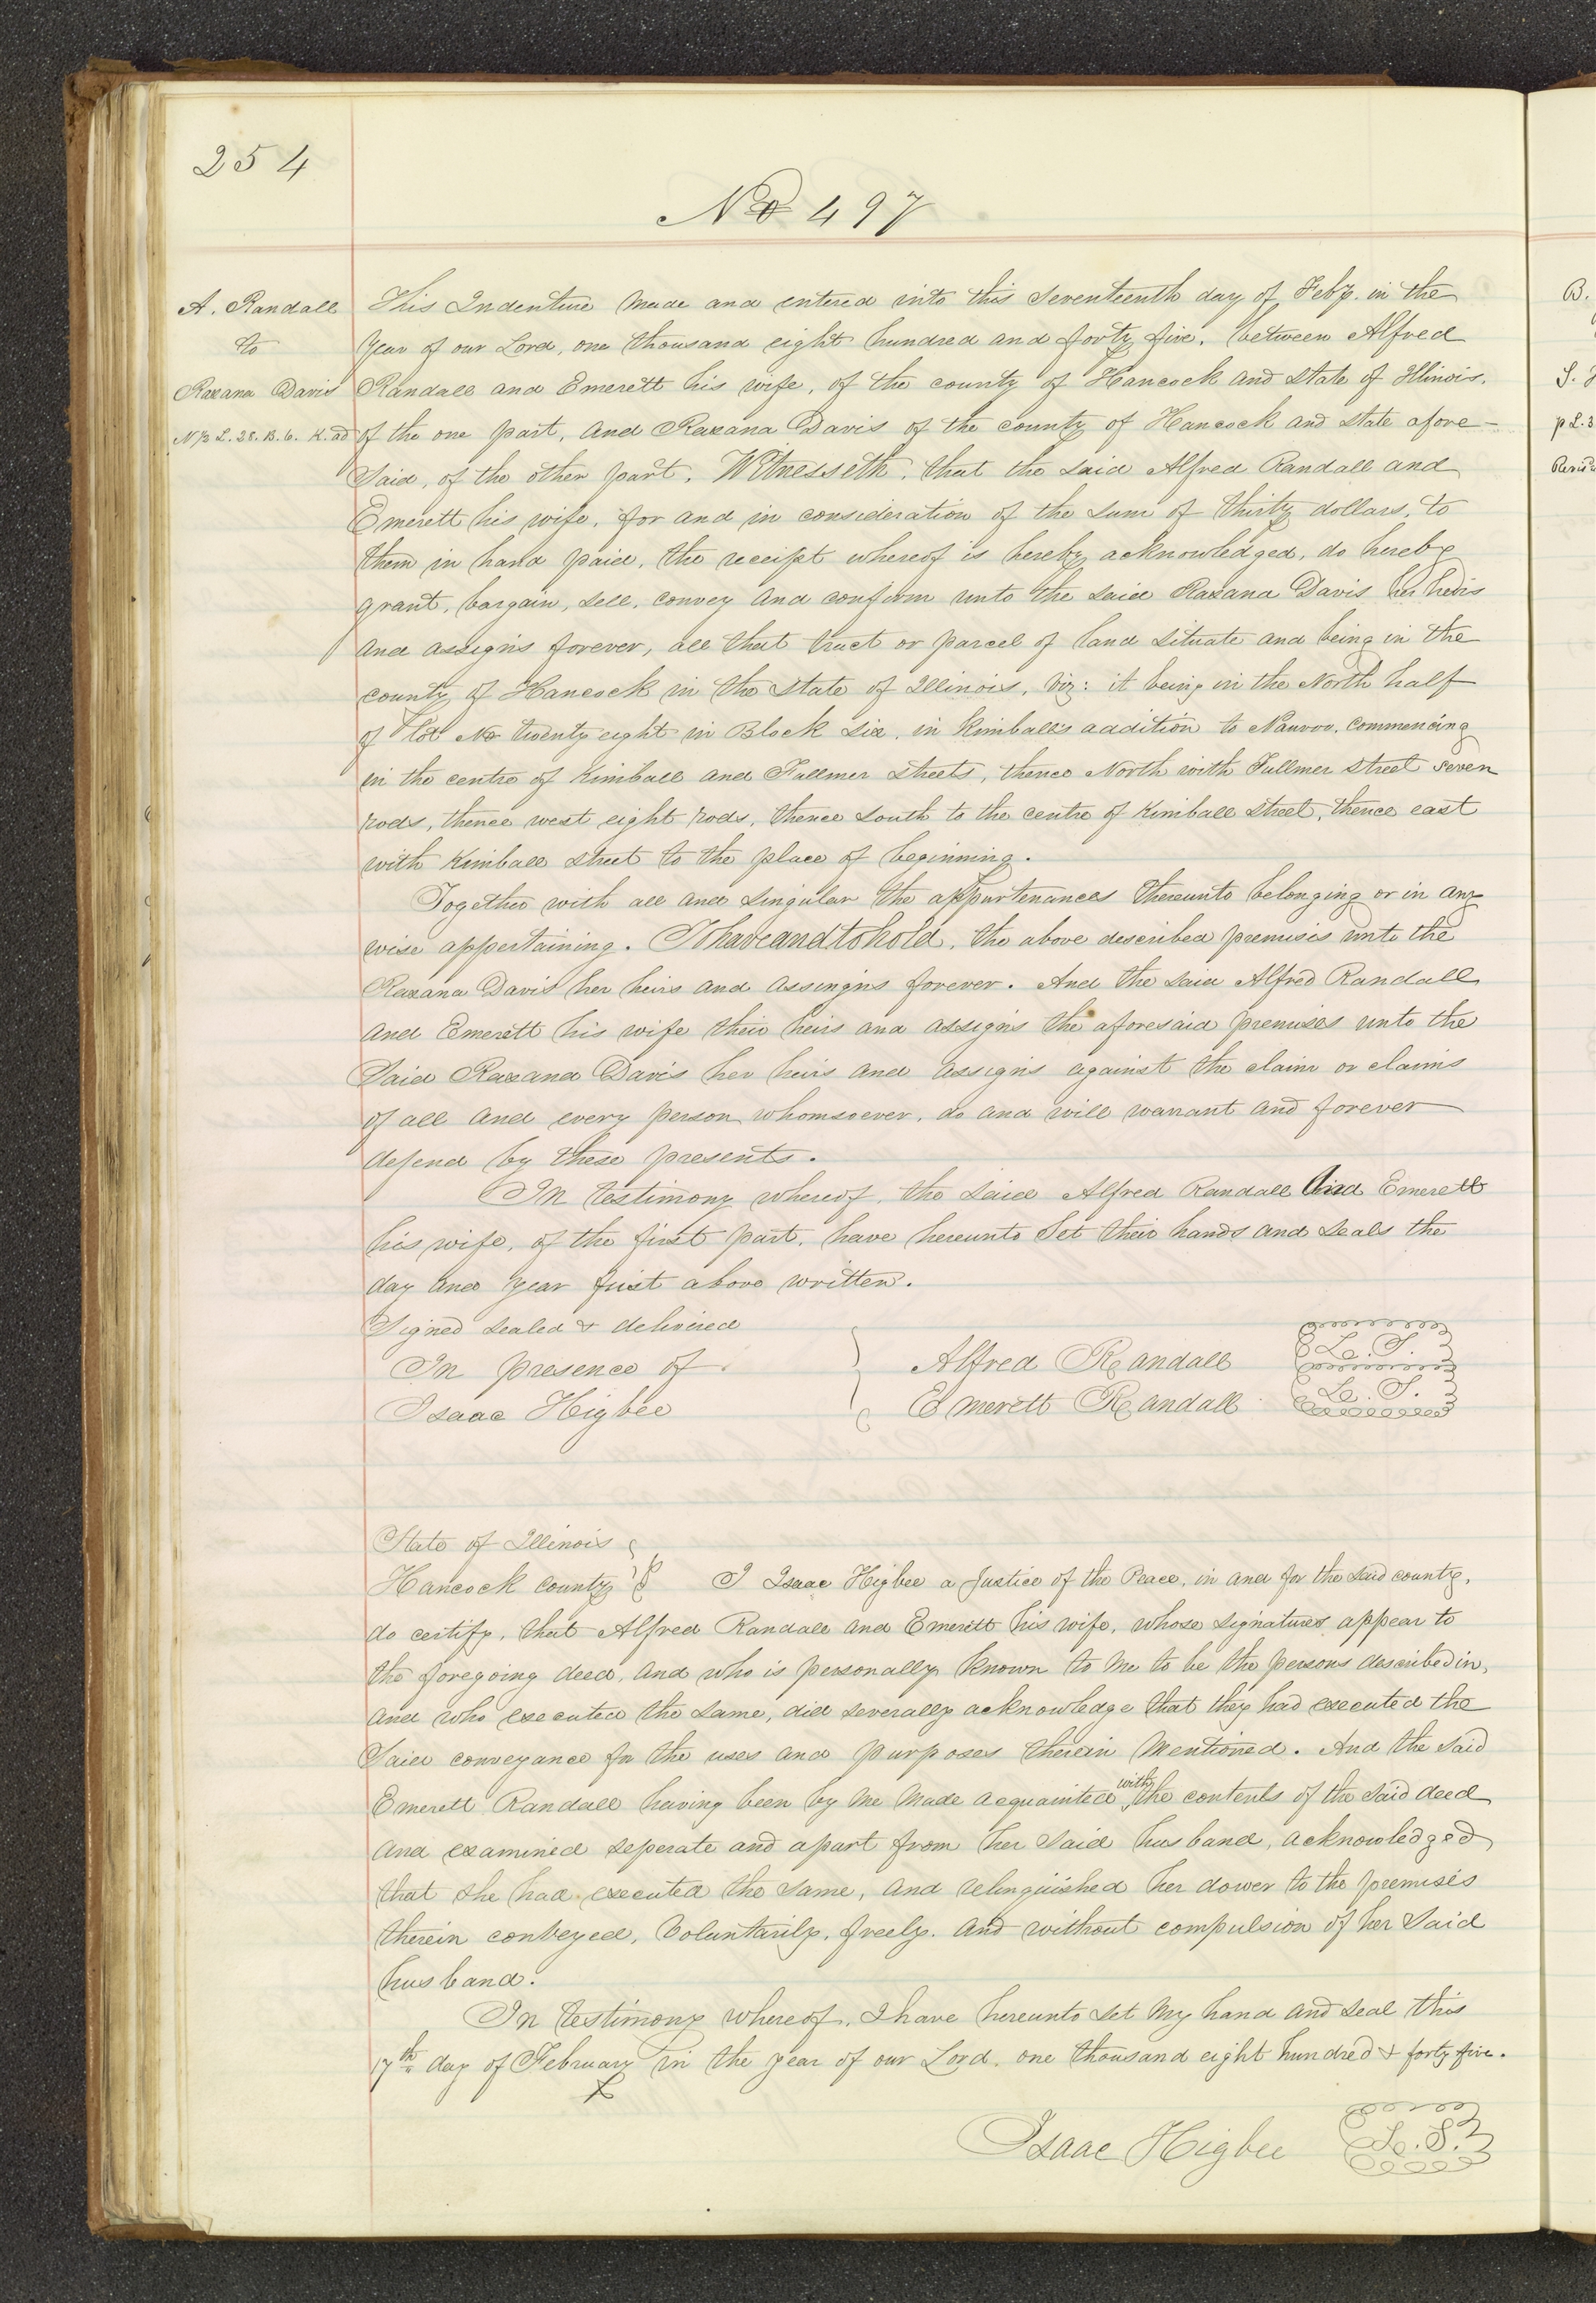 254
No 497
A. Randall
to
Raxana Davis
N 1/2 L. 28. B. 6. K. ad
This Indenture made and entered into this seventeenth day of Feby. in the
year of our Lord, one thousand eight hundred and forty five, between Alfred
Randall and Emerett his wife, of the county of Hancock and state of Illinois,
of the one part, and Raxana Davis of the county of Hancock and state afore-
said, of the other part, Witnesseth, that the said Alfred Randall and
Emerett his wife, for and in consideration of the sum of thirty dollars, to
them in hand paid, the receipt whereof is hereby acknowledged, do hereby
grant, bargain, sell, convey and confirm unto the said Raxana Davis her heirs
and assigns forever, all that tract or parcel of land situate and being in the
county of Hancock in the state of Illinois, viz: it being in the North half
of lot No twenty eight in Block six, in Kimball's addition to Nauvoo, commencing
in the centre of Kimball and Fullmer streets, thence North with Fullmer street seven
rods, thence west eight rods, thence south to the centre of Kimball street, thence east
with Kimball street to the place of beginning.
Together with all and singular the appurtenances thereunto belonging or in any
wise appertaining. To have and to hold, the above described premises unto the
Raxana Davis her heirs and assingns forever. And the said Alfred Randall
and Emerett his wife their heirs and assigns the aforesaid premises unto the
said Raxana Davis her heirs and assigns against the claim or claims
of all and every person whomsoever, do and will warrant and forever
defend by these presents.
In testimony whereof, the said Alfred Randall and Emerett
his wife, of the first part, have hereunto set their hands and seals the
day and year first above written.
Signed sealed & delivered
In presence of
Isaac Higbee
Alfred Randall L. S.
Emerett Randall L. S.
State of Illinois
Hancock county I Isaac Higbee a Justice of the Peace, in and for the said county,
do certify, that Alfred Randall and Emerett his wife, whose signatures appear to
the foregoing deed, and who is personally known to me to be the persons described in,
and who executed the same, did severally acknowledge that they had executed the
said conveyance for the uses and purposes therein mentioned. And the said
Emerett Randall having been by me made acquainted with the contents of the said deed
and examined seperate and apart from her said husband, acknowledged
that she had executed the same, and relinquished her dower to the premises
therein conveyed, voluntarily, freely, and without compulsion of her said
husband.
In testimony whereof, I have hereunto set my hand and seal this
17th day of February in the year of our Lord, one thousand eight hundred & forty five.
Isaac Higbee L. S.